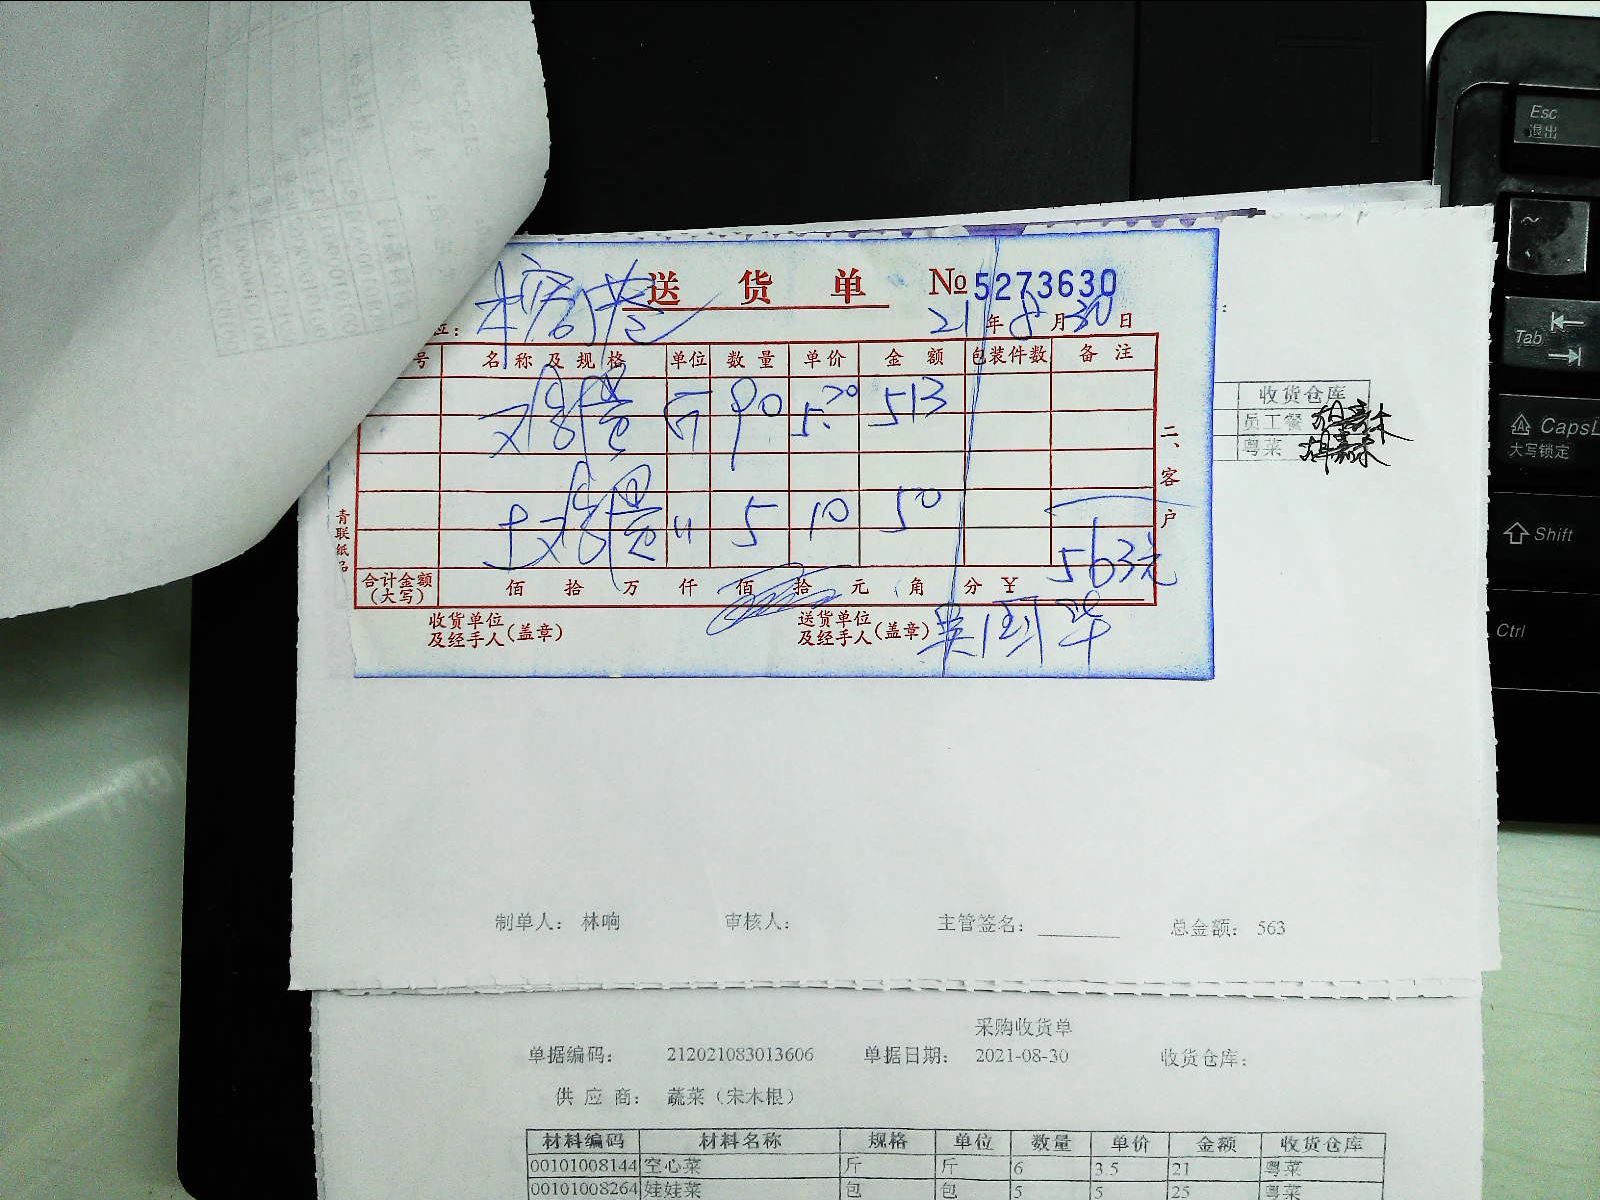 送货单 №5273630
位：
21年8月30日
号 名称及规格 单位 数量 单价 金额 包装件数 备注
斤 90 5.70 513
土 〃 5 10 50
563元
合计金额（大写） 佰 拾 万 仟 佰 拾 元 角 分 ￥
收货单位及经手人（盖章） 送货单位及经手人（盖章）
二、客户
青联纸品
收货仓库
员工餐
粤菜
制单人： 林响 审核人： 主管签名： 总金额： 563
采购收货单
单据编码： 212021083013606 单据日期： 2021-08-30 收货仓库：
供应商： 蔬菜（宋木根）
材料编码 材料名称 规格 单位 数量 单价 金额 收货仓库
00101008144 空心菜 斤 斤 6 3.5 21 粤菜
00101008264 娃娃菜 包 包 5 5 25 粤菜
Esc
退出
~
Tab
CapsL
大写锁定
Shift
Ctrl